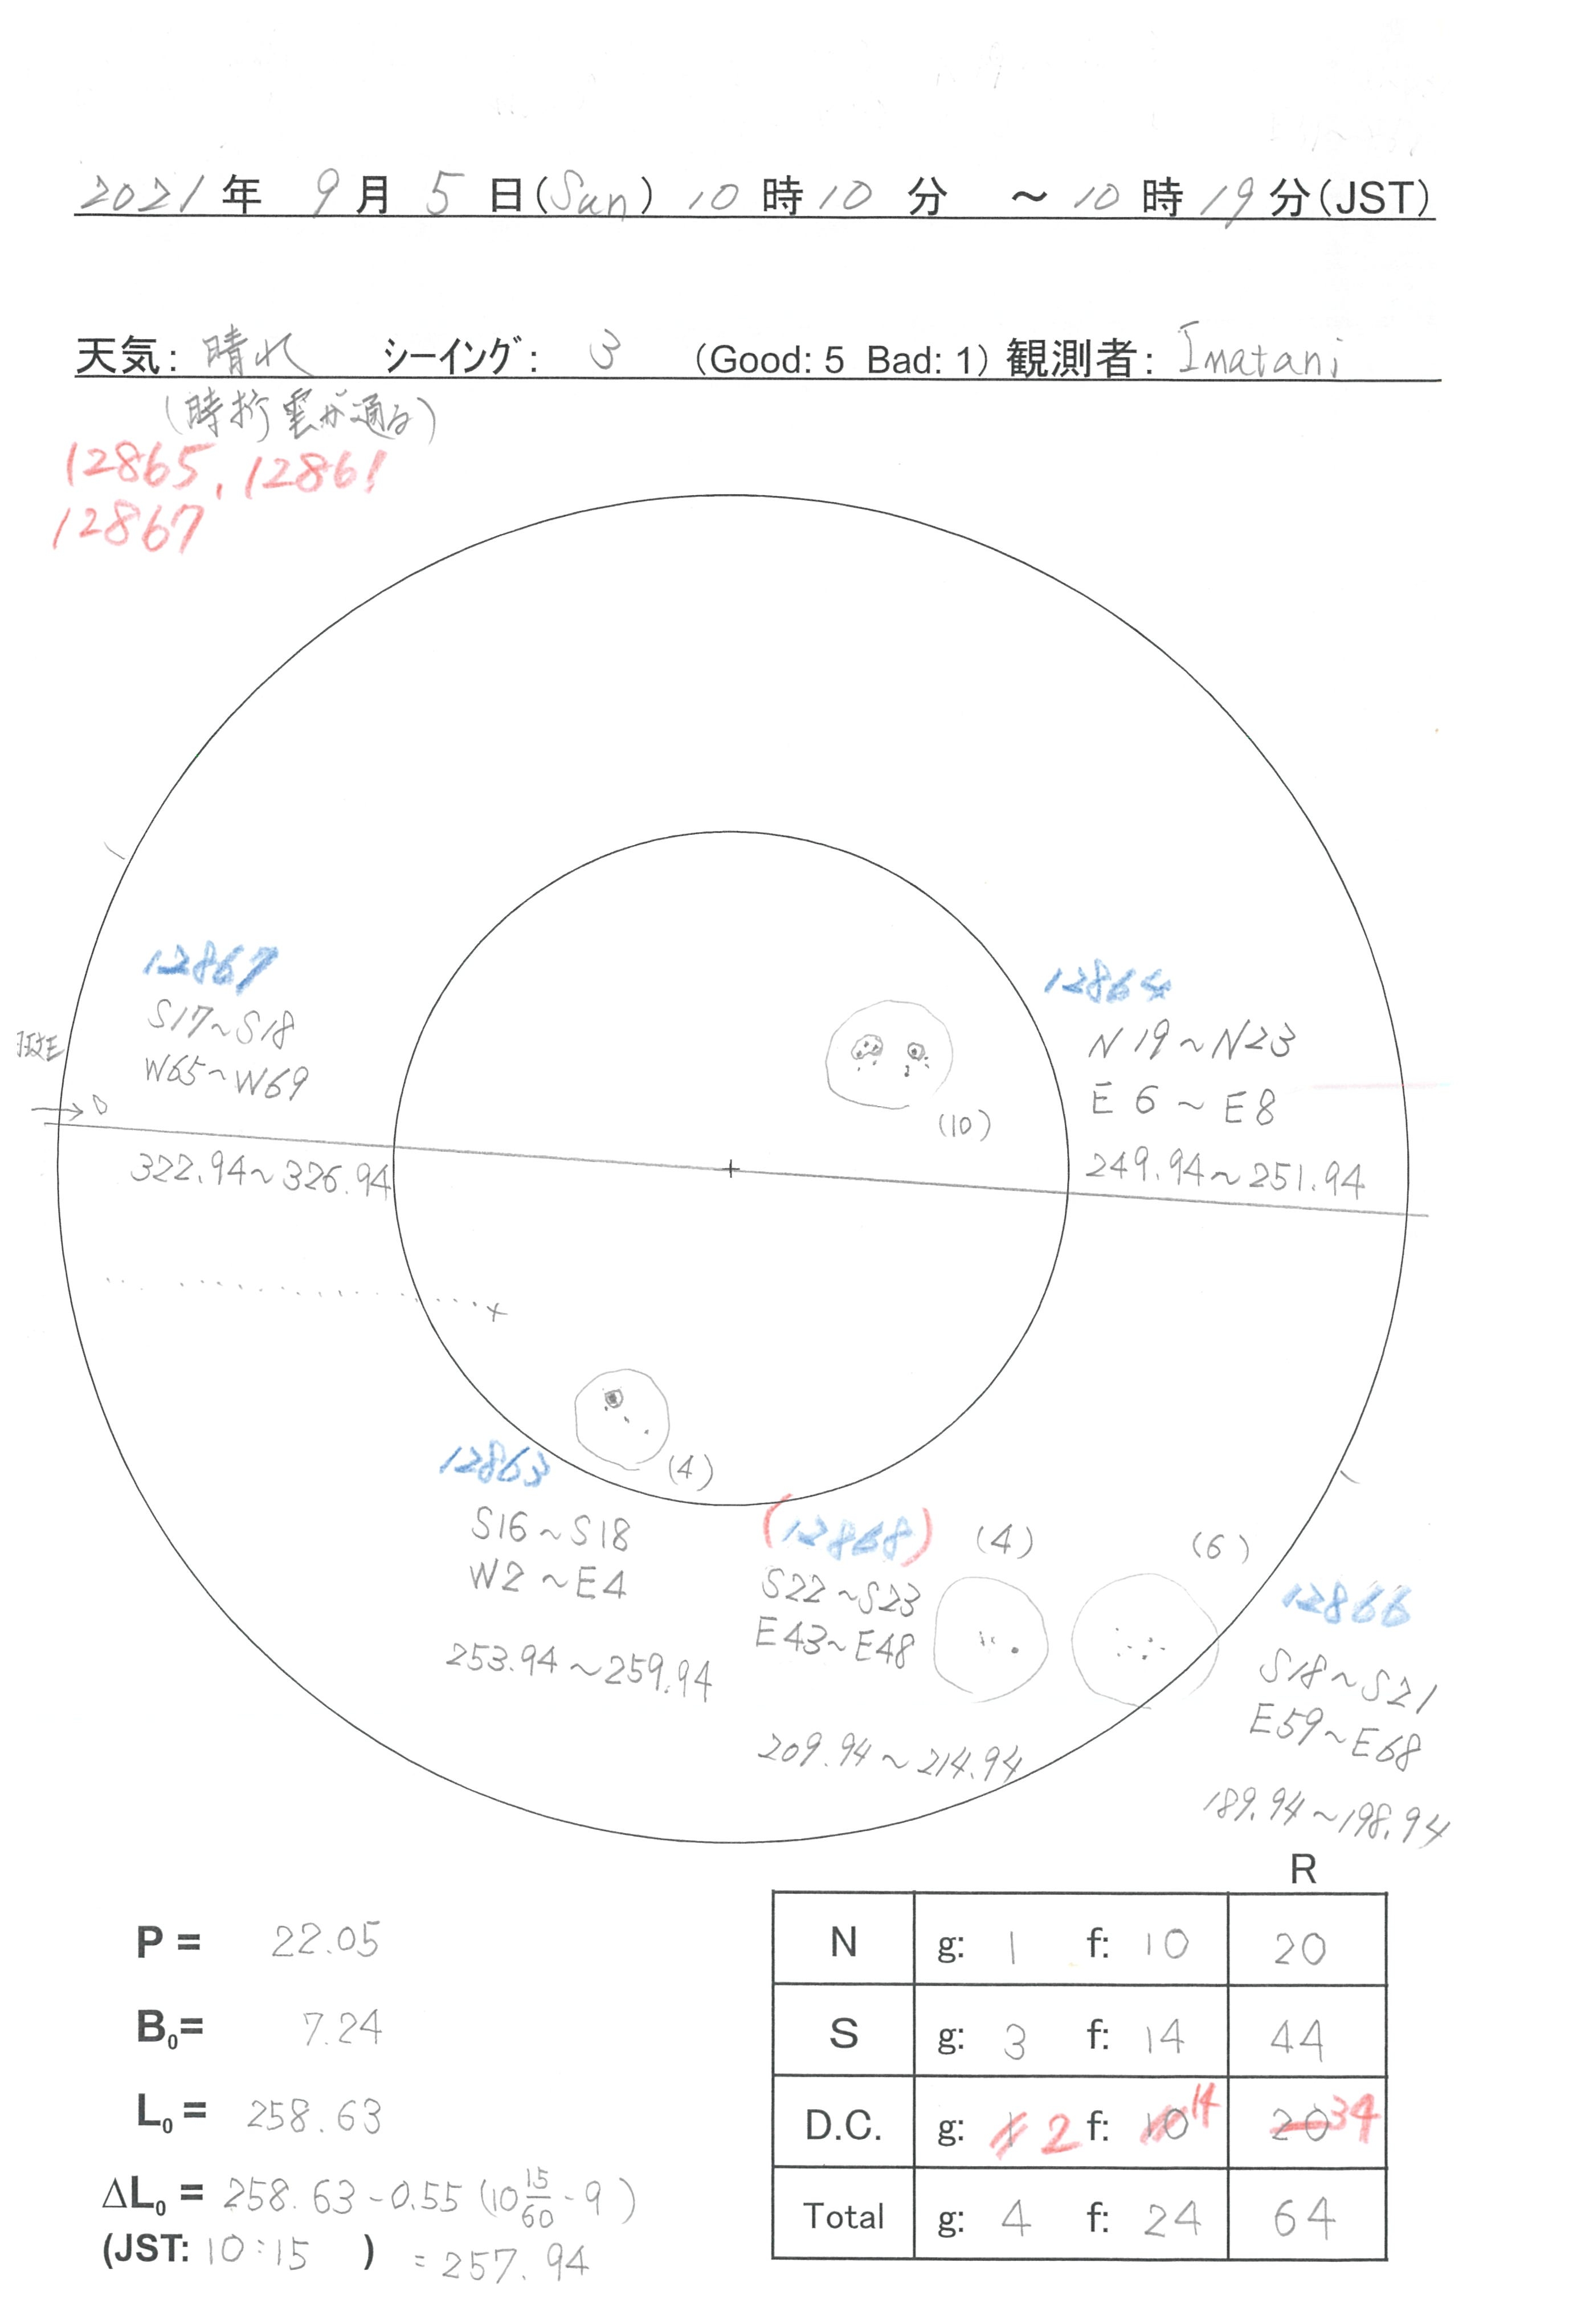 2021年 9月 5日(Sun) 10時10分 ～10時19分(JST)
天気: 晴れ シーイング: 3 (Good: 5 Bad: 1) 観測者: Imatani
(時折雲が通る)
12865, 12861
12867
12867
S17~S18
W65~W69
322.94~326.94
12864
N19~N23
E6~E8
(10)
249.94~251.94
12863
(4)
S16~S18
W2~E4
253.94~259.94
(12868)
(4)
S22~S23
E43~E48
209.94~214.94
(6)
12866
S18~S21
E59~E68
189.94~198.94
P = 22.05
B0= 7.24
L0= 258.63
ΔL0= 258.63-0.55(10 15/60-9)
(JST: 10:15 ) =257.94
R
N g: 1 f: 10 20
S g: 3 f: 14 44
D.C. g: 1 2 f: 10 14 20 34
Total g: 4 f: 24 64